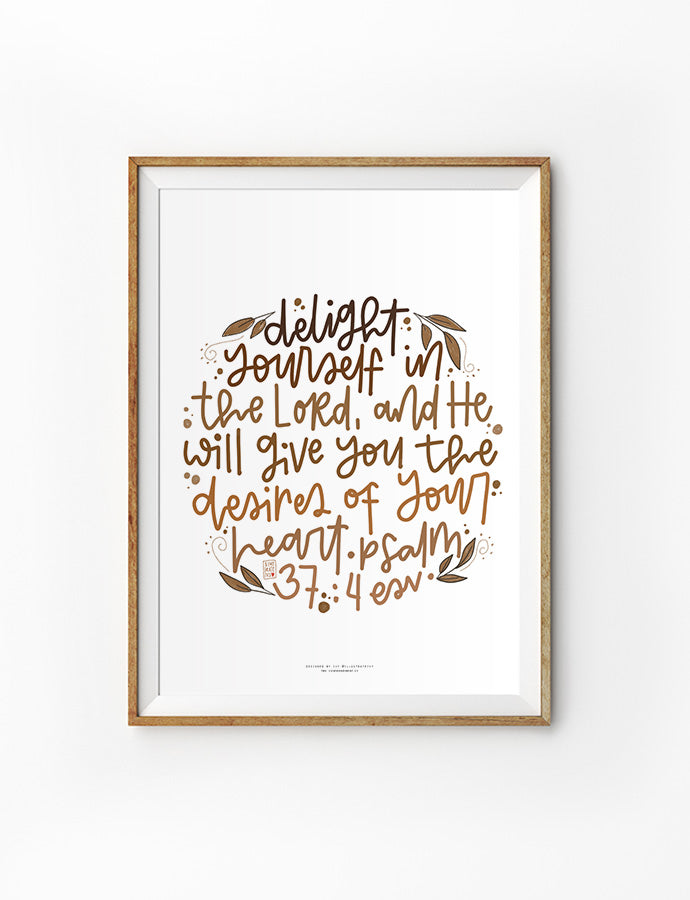 delight
yourself in
the Lord, and He
will give you the
desires of your
heart. psalm
37:4 esv.